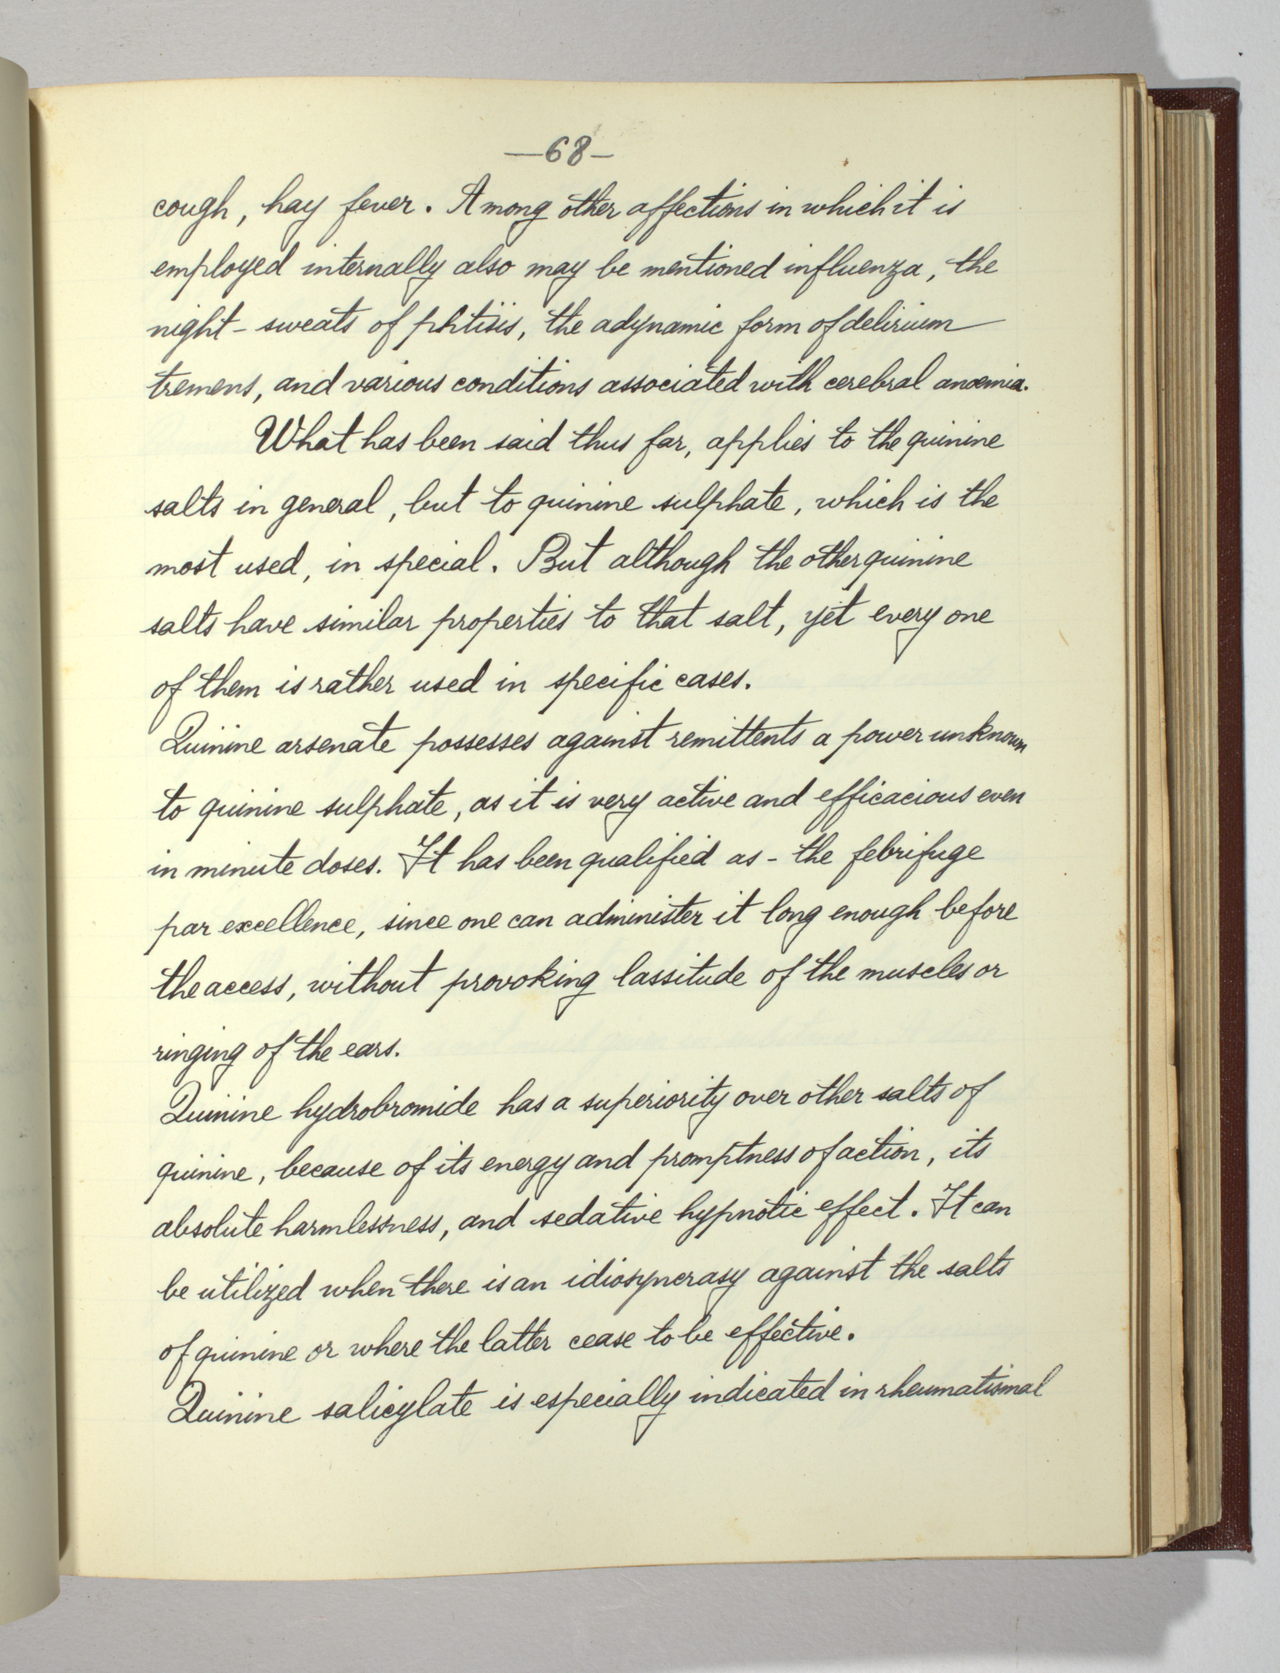 —68—
cough, hay fever. Among other affections in which it is
employed internally also may be mentioned influenza, the
night-sweats of phtisis, the adynamic form of delirium
tremens, and various conditions associated with cerebral anoemia.
What has been said thus far, applies to the quinine
salts in general, but to quinine sulphate, which is the
most used, in special. But although the other quinine
salts have similar properties to that salt, yet every one
of them is rather used in specific cases.
Quinine arsenate possesses against remittents a power unknown
to quinine sulphate, as it is very active and efficacious even
in minute doses. It has been qualified as - the febrifuge
par excellence, since one can administer it long enough before
the access, without provoking lassitude of the muscles or
ringing of the ears.
Quinine hydrobromide has a superiority over other salts of
quinine, because of its energy and promptness of action, its
absolute harmlessness, and sedative hypnotic effect. It can
be utilized when there is an idiosyncrasy against the salts
of quinine or where the latter cease to be effective.
Quinine salicylate is especially indicated in rheumatismal